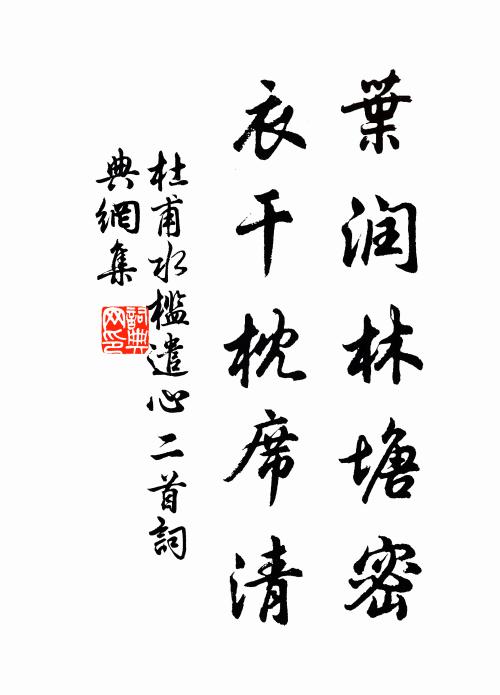 葉润林塘密
衣干枕席清
杜甫水檻遣心二首詞
典網集
詞典
网印